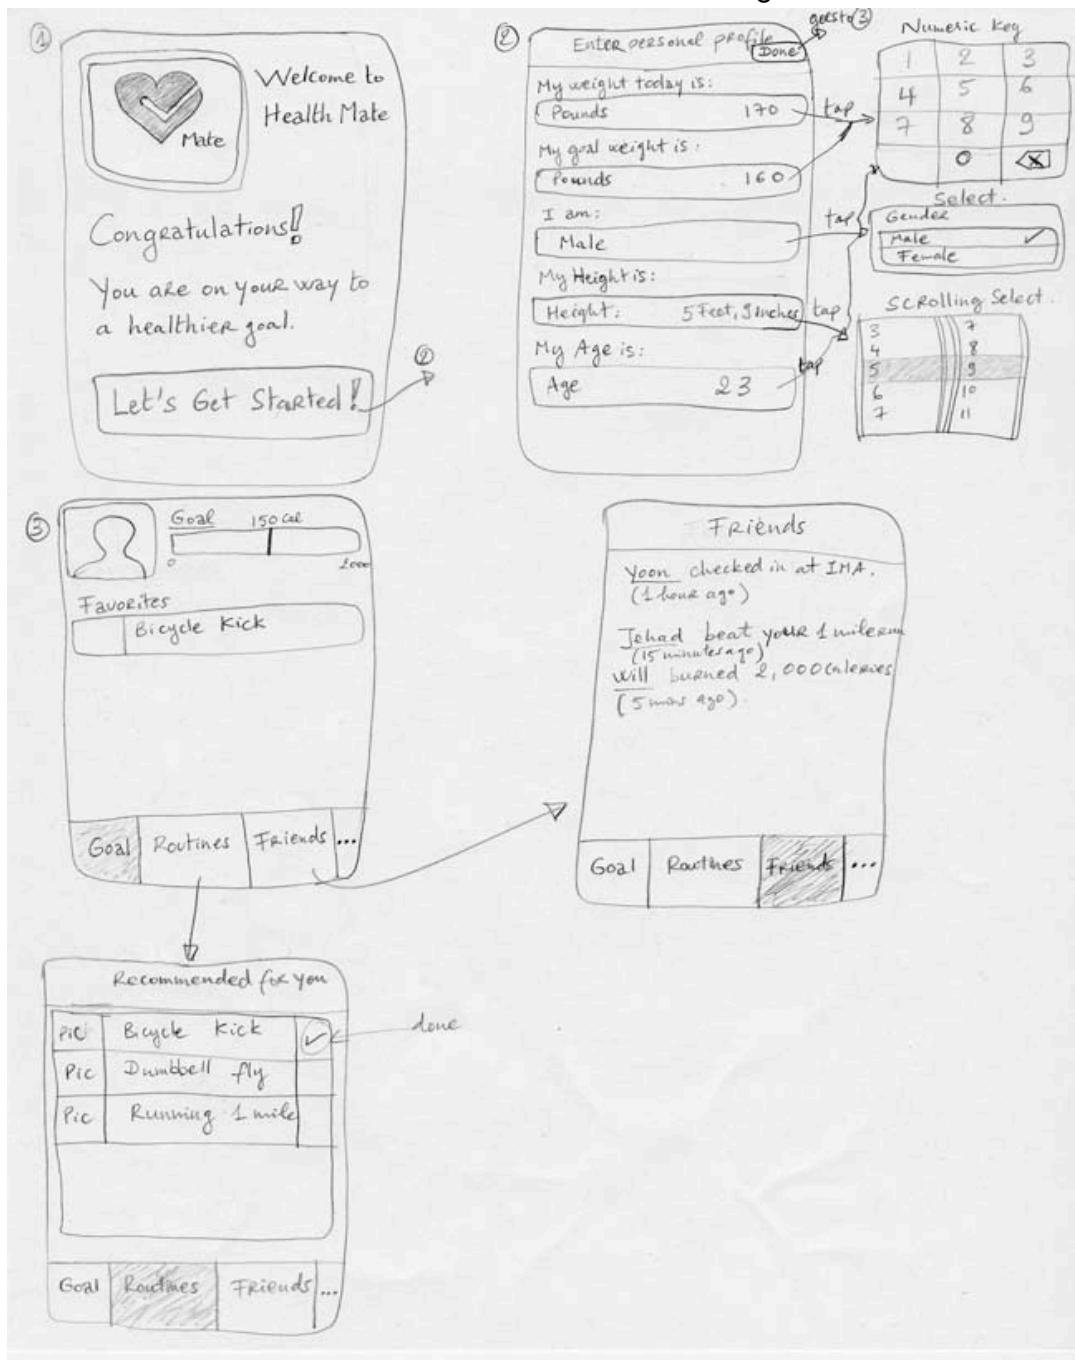 1
Mate
Welcome to
Health Mate
Congratulations!
You are on your way to
a healthier goal.
Let's Get Started!
2
2
Enter personal profile
Done
goes to 3
My weight today is:
Pounds 170
tap
My goal weight is:
Pounds 160
I am:
Male
tap
My Height is:
Height: 5 Feet, 9 Inches
tap
My Age is:
Age 23
tap
Numeric Key
1 2 3
4 5 6
7 8 9
0 X
Select.
Gender
Male
Female
Scrolling Select.
3 7
4 8
5 9
6 10
7 11
3
Goal 150 Cal
0 2000
Favorites
Bicycle Kick
Goal Routines Friends ...
Friends
Yoon checked in at IMA.
(1 hour ago)
Jehad beat your 1 mile run
(15 minutes ago)
Will burned 2,000 Caleries
(5 mins ago).
Goal Routines Friends ...
Recommended for you
Pic Bicycle Kick
done
Pic Dumbbell fly
Pic Running 1 mile
Goal Routines Friends ...